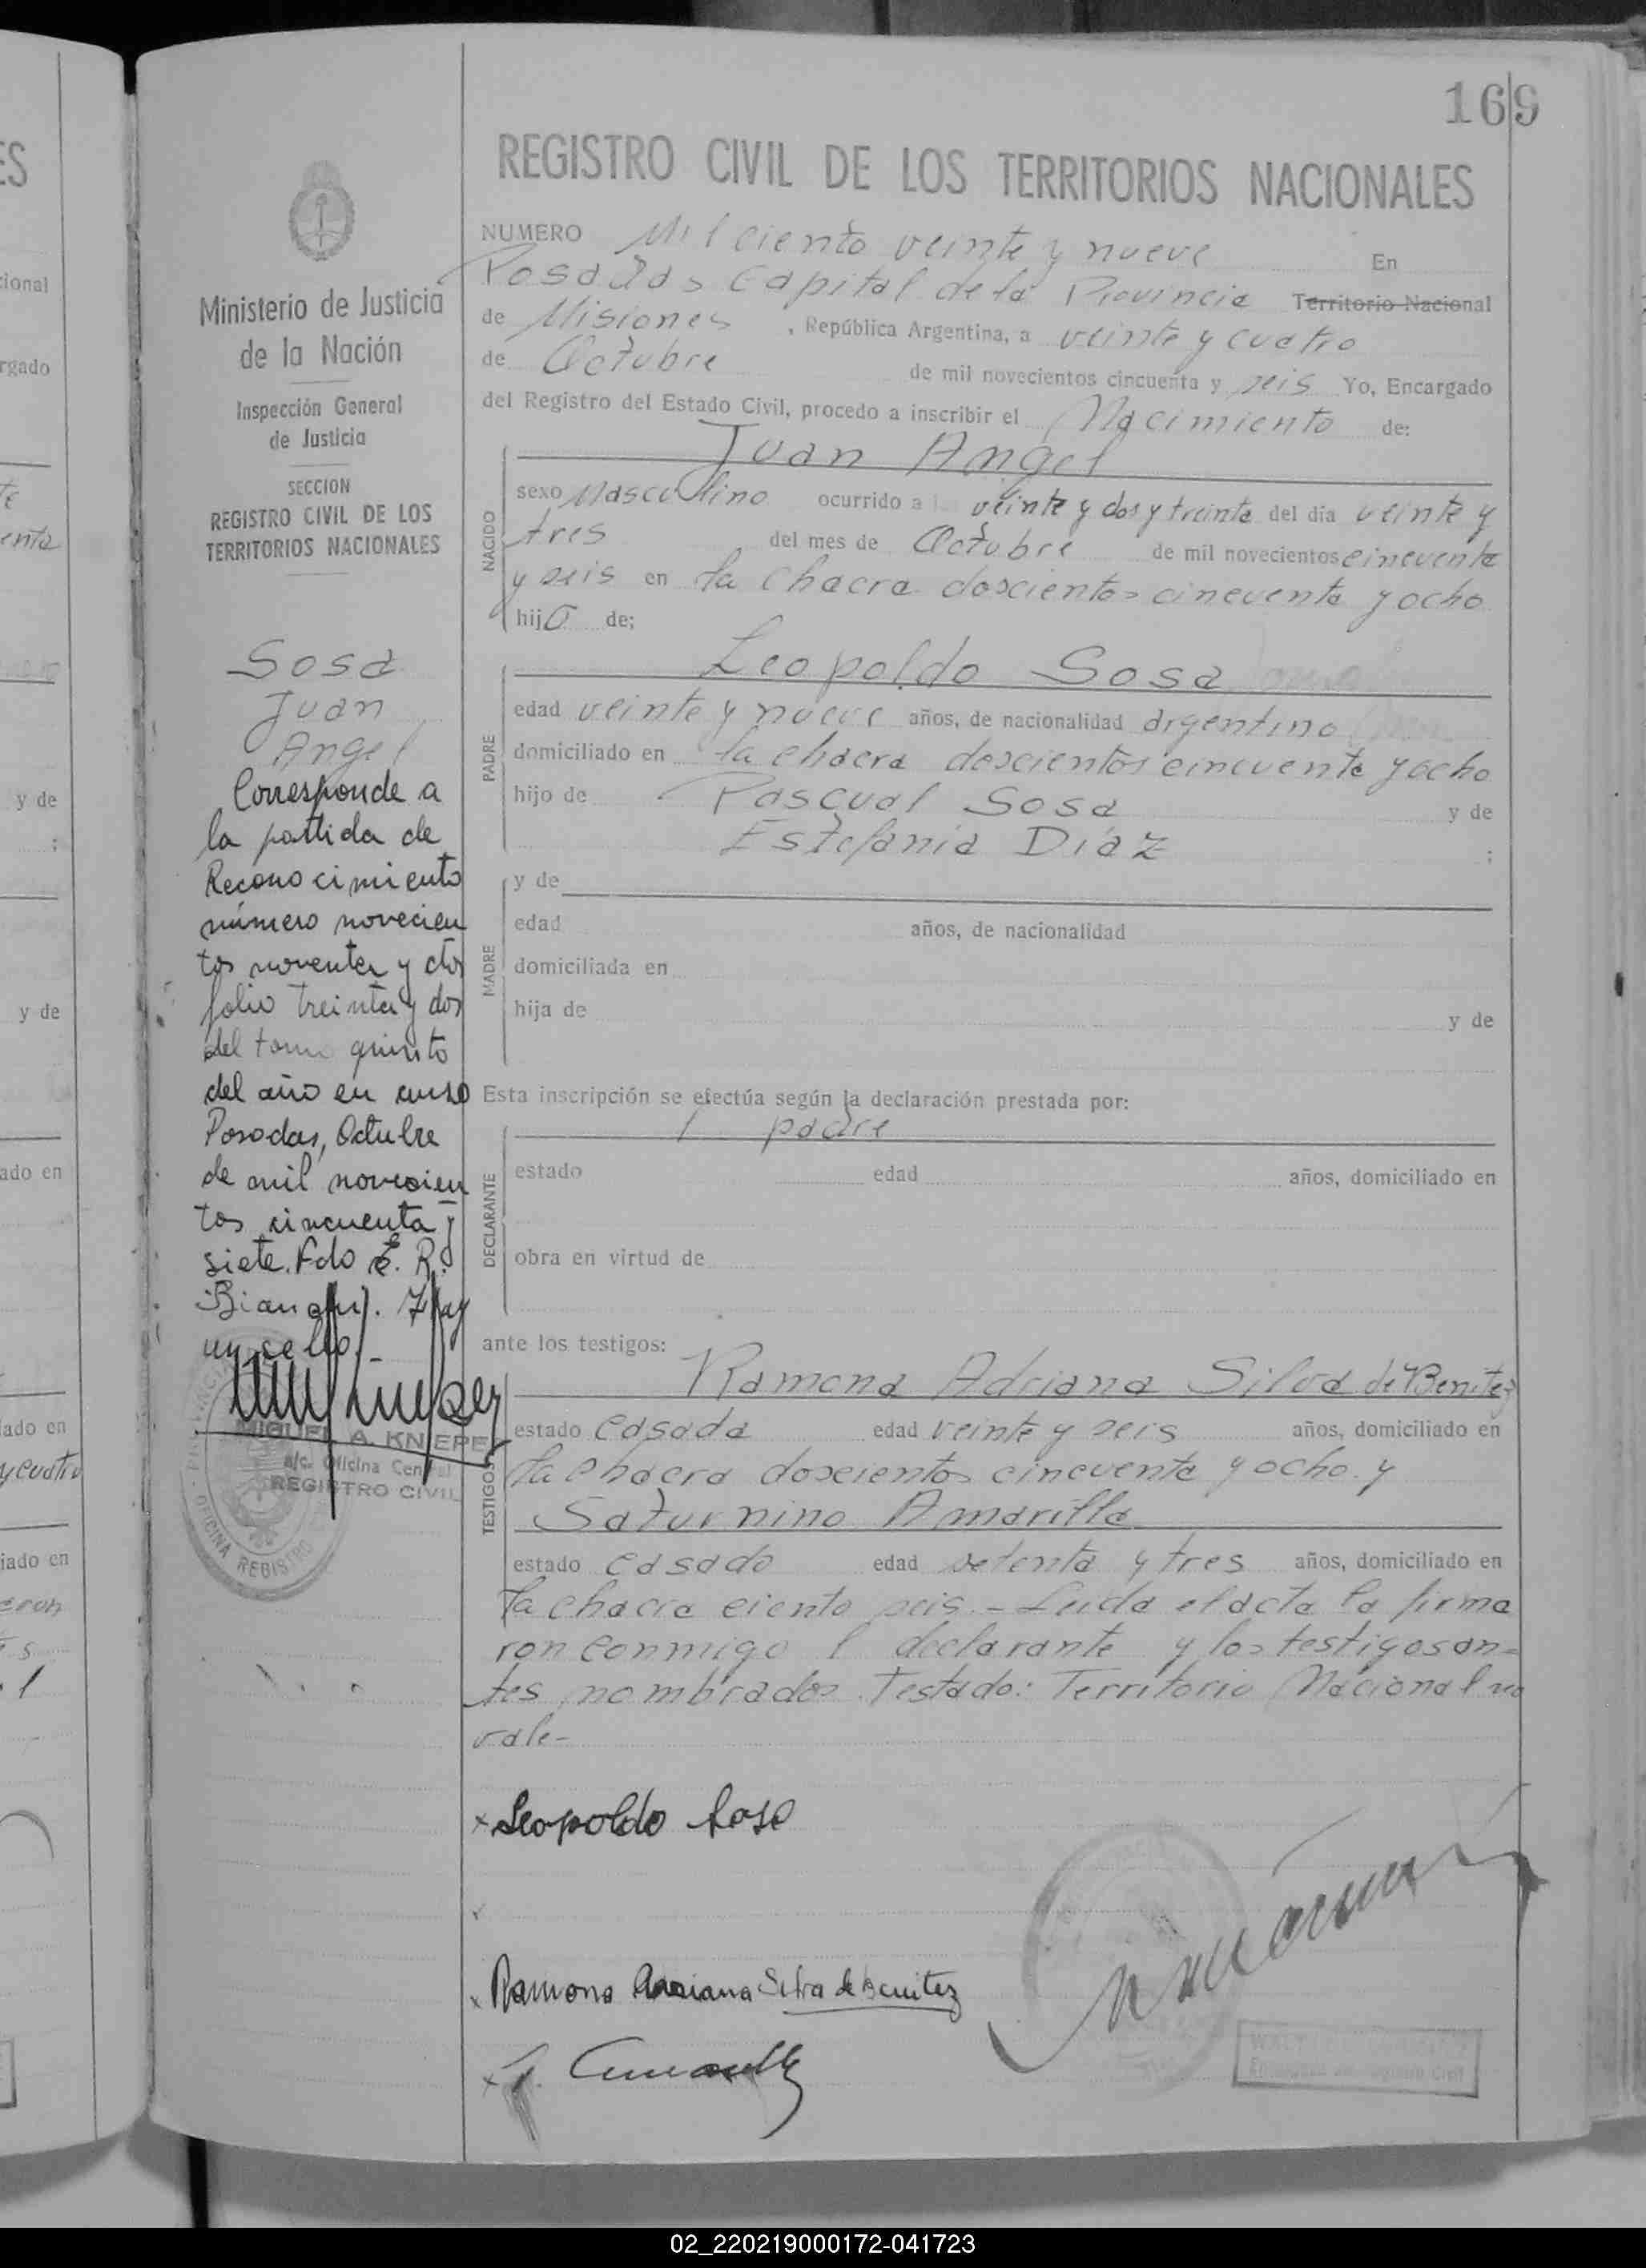 169
REGISTRO CIVIL DE LOS TERRITORIOS NACIONALES
NUMERO Mil ciento veinte y nueve En
Posadas Capital de la Provincia Territorio Nacional
de Misiones, República Argentina, a veinte y cuatro
de Octubre de mil novecientos cincuenta y seis Yo, Encargado
del Registro del Estado Civil, procedo a inscribir el Nacimiento de:
Juan Angel
NACIDO
sexo Masculino ocurrido a l veinte y dos y treinta del día veinte y
tres del mes de Octubre de mil novecientos cincuenta
y seis en la chacra doscientos cincuenta y ocho
hijo de;
PADRE
Leopoldo Sosa
edad veinte y nueve años, de nacionalidad argentino
domiciliado en la chacra doscientos cincuenta y ocho
hijo de Pascual Sosa y de
Estefania Díaz ;
MADRE
y de
edad años, de nacionalidad
domiciliada en
hija de y de
Esta inscripción se efectúa según la declaración prestada por:
DECLARANTE
l padre
estado edad años, domiciliado en
obra en virtud de
ante los testigos:
TESTIGOS
Ramona Adriana Silva de Benitez
estado casada edad veinte y seis años, domiciliado en
la chacra doscientos cincuenta y ocho y
Saturnino Amarilla
estado casado edad setenta y tres años, domiciliado en
la chacra ciento seis.- Leida el acta la firma
ron conmigo l declarante y los testigos an=
tes nombrados. Testado: Territorio Nacional no
vale-
x Leopoldo Sosa
x Ramona Adriana Silva de Benitez
Ministerio de Justicia
de la Nación
Inspección General
de Justicia
SECCION
REGISTRO CIVIL DE LOS
TERRITORIOS NACIONALES
Sosa
Juan
Angel
Corresponde a
la partida de
Reconocimiento
número novecien
tos noventa y dos
folio treinta y dos
del tomo quinto
del año en curso
Posadas, Octubre
de mil novecien
tos cincuenta y
siete. Fdo E. R.
Bianchi. Hay
un sello.-
MIGUEL A. KNIEPE
a/c. Oficina Central
REGISTRO CIVIL
OFICINA REGISTRO
ES
cional
rgado
enta
y de
;
y de
ado en
iado en
y cuatro
iado en
02_220219000172-041723